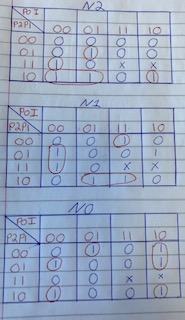 N2
P0I
P2P1 00 01 11 10
00 0 0 0 0
01 0 1 0 0
11 1 0 x x
10 1 0 1
N1
P0I
P2P1 00 01 11 10
00 0 0 1 0
01 1 0 0 1
11 1 0 x x
10 0 1 0
N0
P0I
P2P1 00 01 11 10
00 0 1 0 1
01 1 0 0 1
11 0 0 x x
10 1 0 0 1